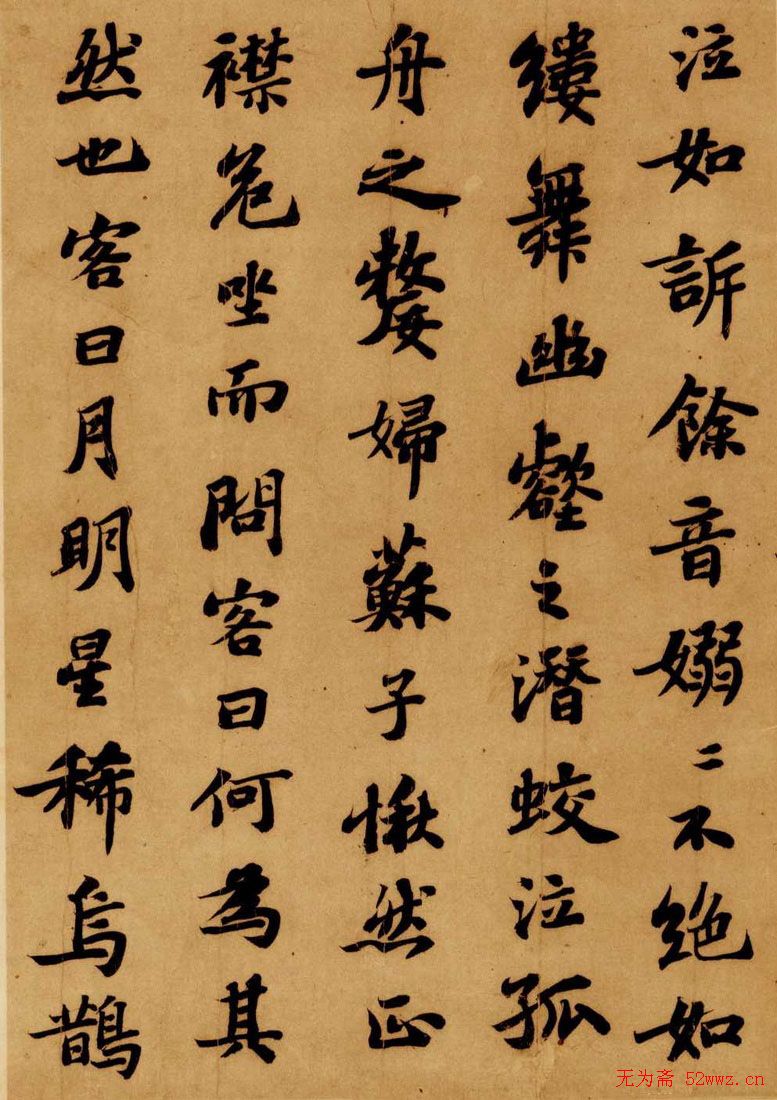 泣如訴餘音嫋二不絶如
縷舞幽壑之潛蛟泣孤
舟之嫠婦蘇子愀然正
襟危坐而問客曰何為其
然也客曰月明星稀烏鵲
无为斋 52wwz.cn